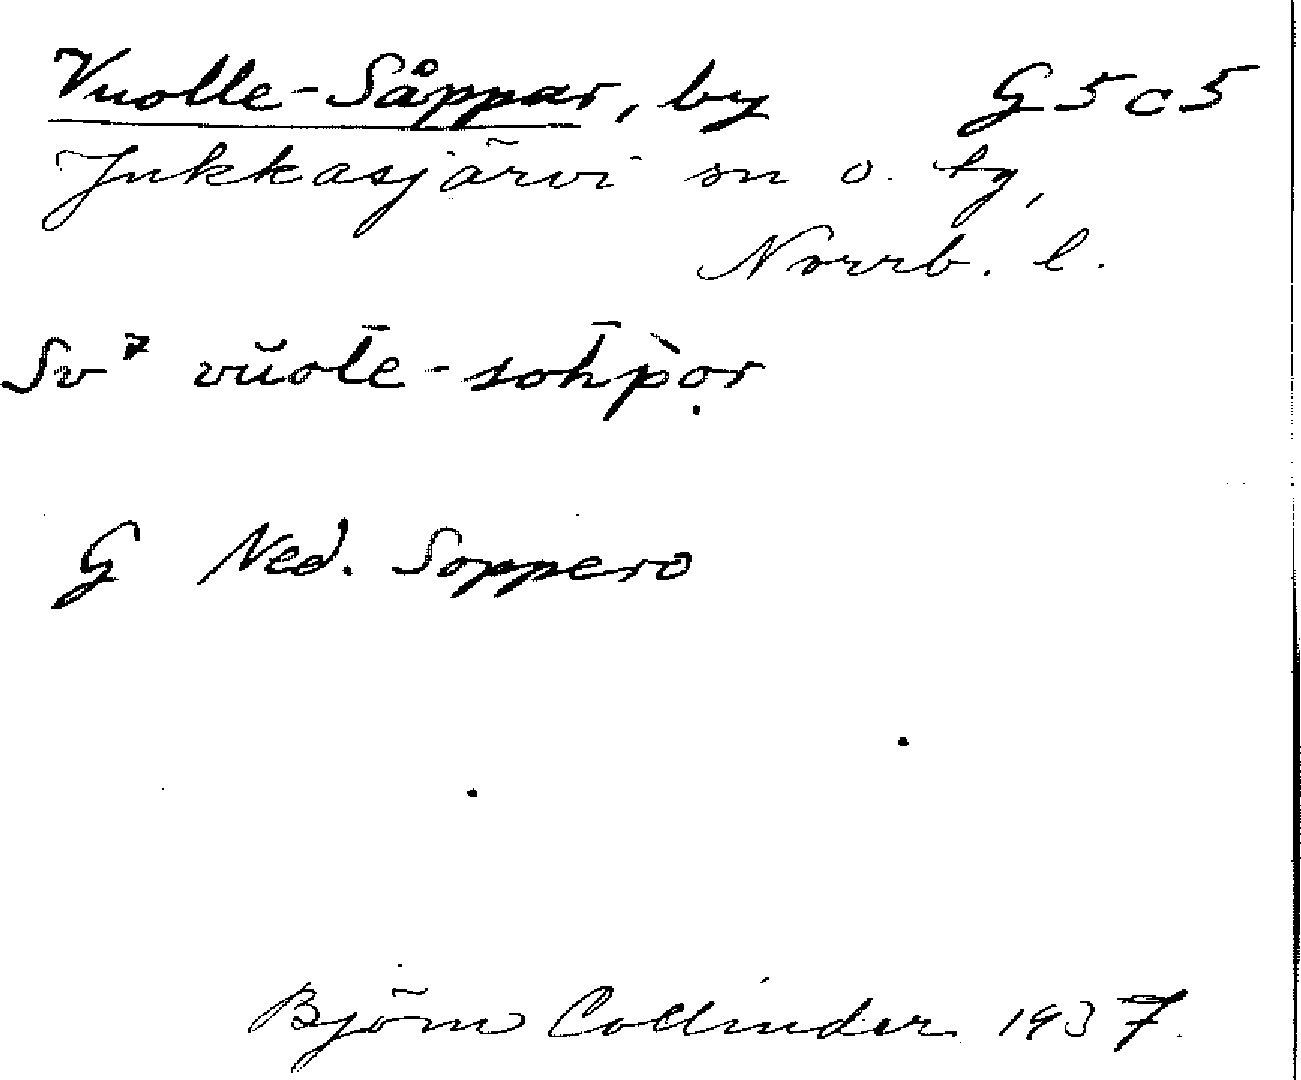 Vuolle-Såppar, by G5c5
Jukkasjärvi sn o. tg,
Norrb. l.
Sv⁷ vŭolē-sōh̄p̀ọr
G Ned. Soppero
Björn Collinder 1937